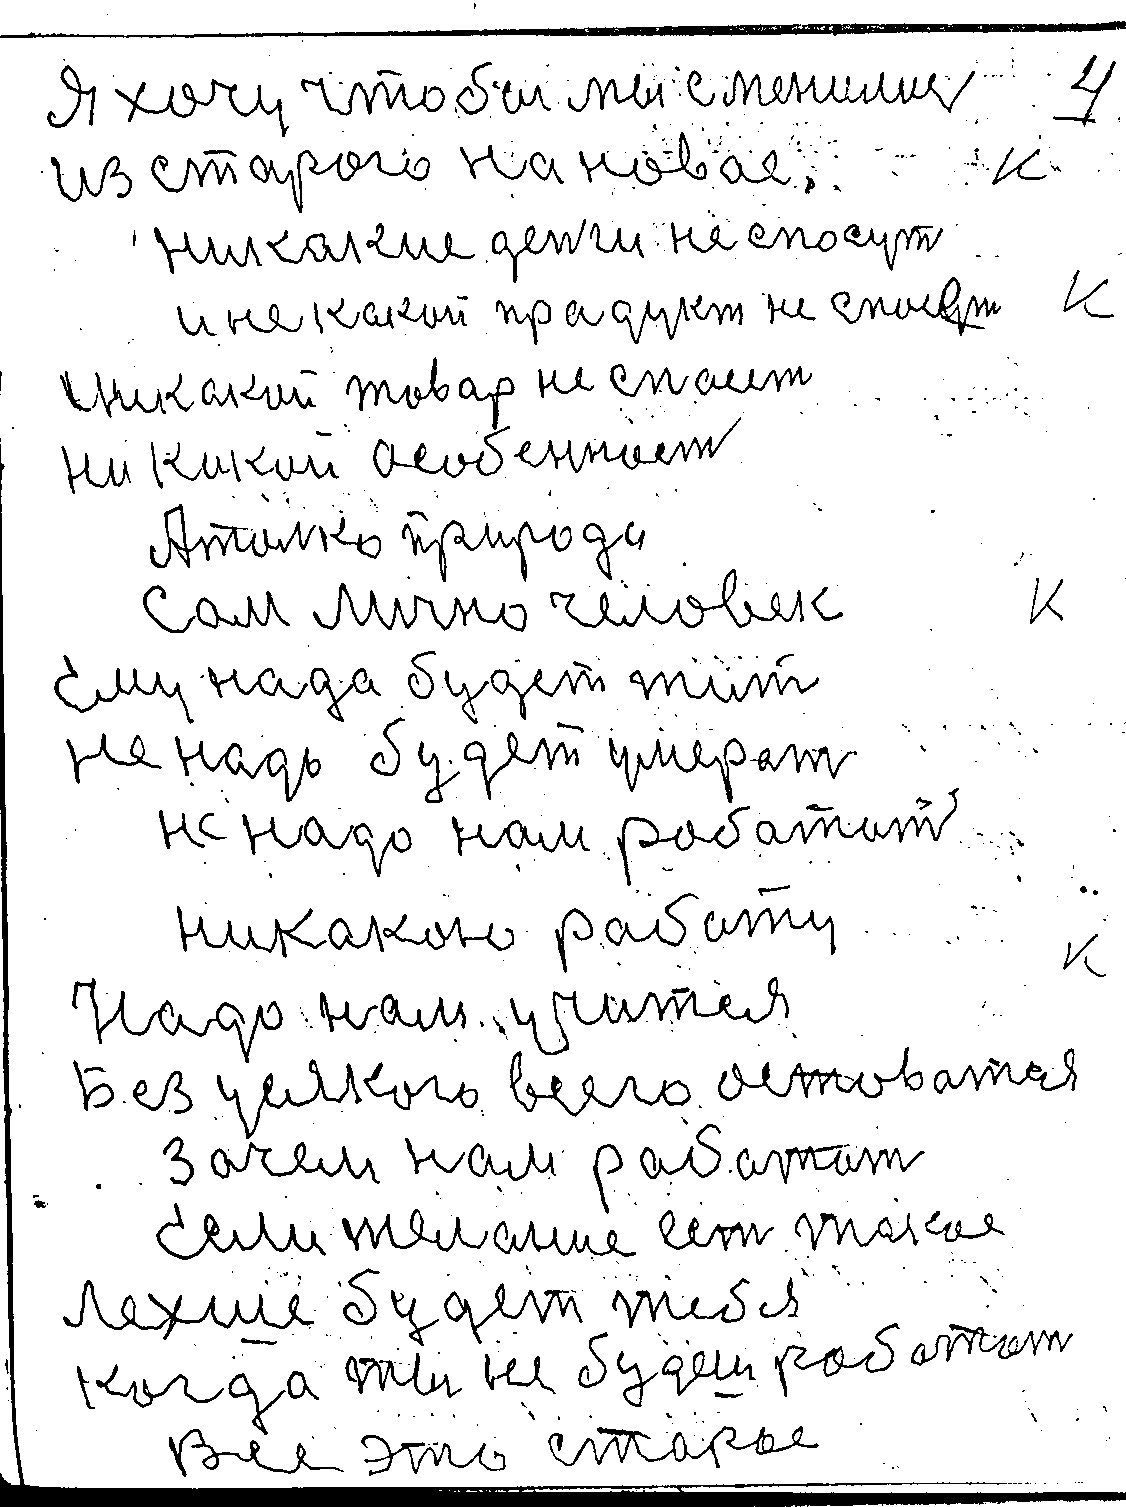 Я хочу чтобы мы сменились 4
из старого на новое. К
никакие денги не спосут
и не какой прадукт не споет К
никакой товар не споит
ни какой особенност
А толко природа
Сам лично человек К
Ему нада будет жит
не надь будет умерат
не надо нам роботот
никакою работу
К
Надо нам учится
Без усякого всего остоватся
Зачем нам работат
Если желание ест такое
Лехше будет тебя
когда ты не будеш роботот
Все это старое